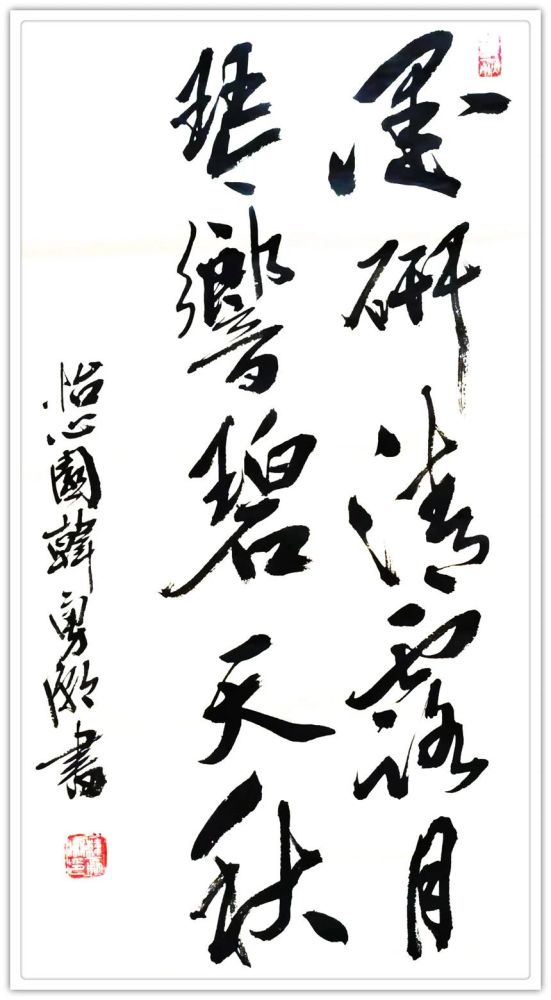 墨研清露月
琴響碧天秋
怡心園韓勇㵎書